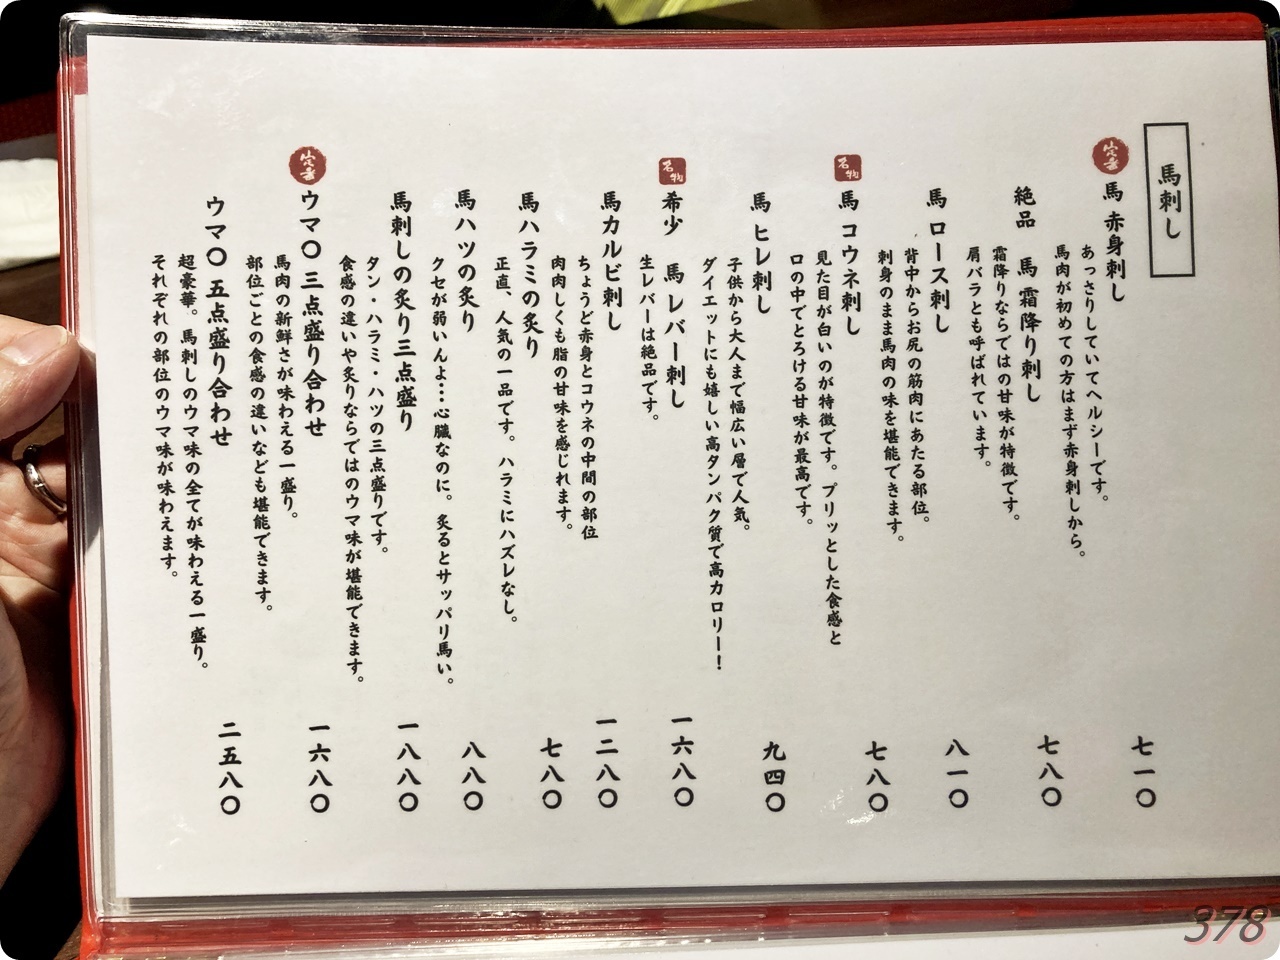 馬刺し
定番
馬 赤身刺し
あっさりしていてヘルシーです。
馬肉が初めての方はまず赤身刺しから。
七一〇
絶品 馬 霜降り刺し
霜降りならではの甘味が特徴です。
肩バラとも呼ばれています。
七八〇
馬 ロース刺し
背中からお尻の筋肉にあたる部位。
刺身のまま馬肉の味を堪能できます。
八一〇
名物
馬 コウネ刺し
見た目が白いのが特徴です。プリッとした食感と
口の中でとろける甘味が最高です。
七八〇
馬 ヒレ刺し
子供から大人まで幅広い層で人気。
ダイエットにも嬉しい高タンパク質で高カロリー！
九四〇
名物
希少 馬 レバー刺し
生レバーは絶品です。
一六八〇
馬カルビ刺し
ちょうど赤身とコウネの中間の部位
肉肉しくも脂の甘味を感じれます。
一二八〇
馬ハラミの炙り
正直、人気の一品です。ハラミにハズレなし。
七八〇
馬ハツの炙り
クセが弱いんよ…心臓なのに。炙るとサッパリ馬い。
八八〇
馬刺しの炙り三点盛り
タン・ハラミ・ハツの三点盛りです。
食感の違いや炙りならではのウマ味が堪能できます。
一八八〇
定番
ウマ〇 三点盛り合わせ
馬肉の新鮮さが味わえる一盛り。
部位ごとの食感の違いなども堪能できます。
一六八〇
ウマ〇 五点盛り合わせ
超豪華。馬刺しのウマ味の全てが味わえる一盛り。
それぞれの部位のウマ味が味わえます。
二五八〇
378